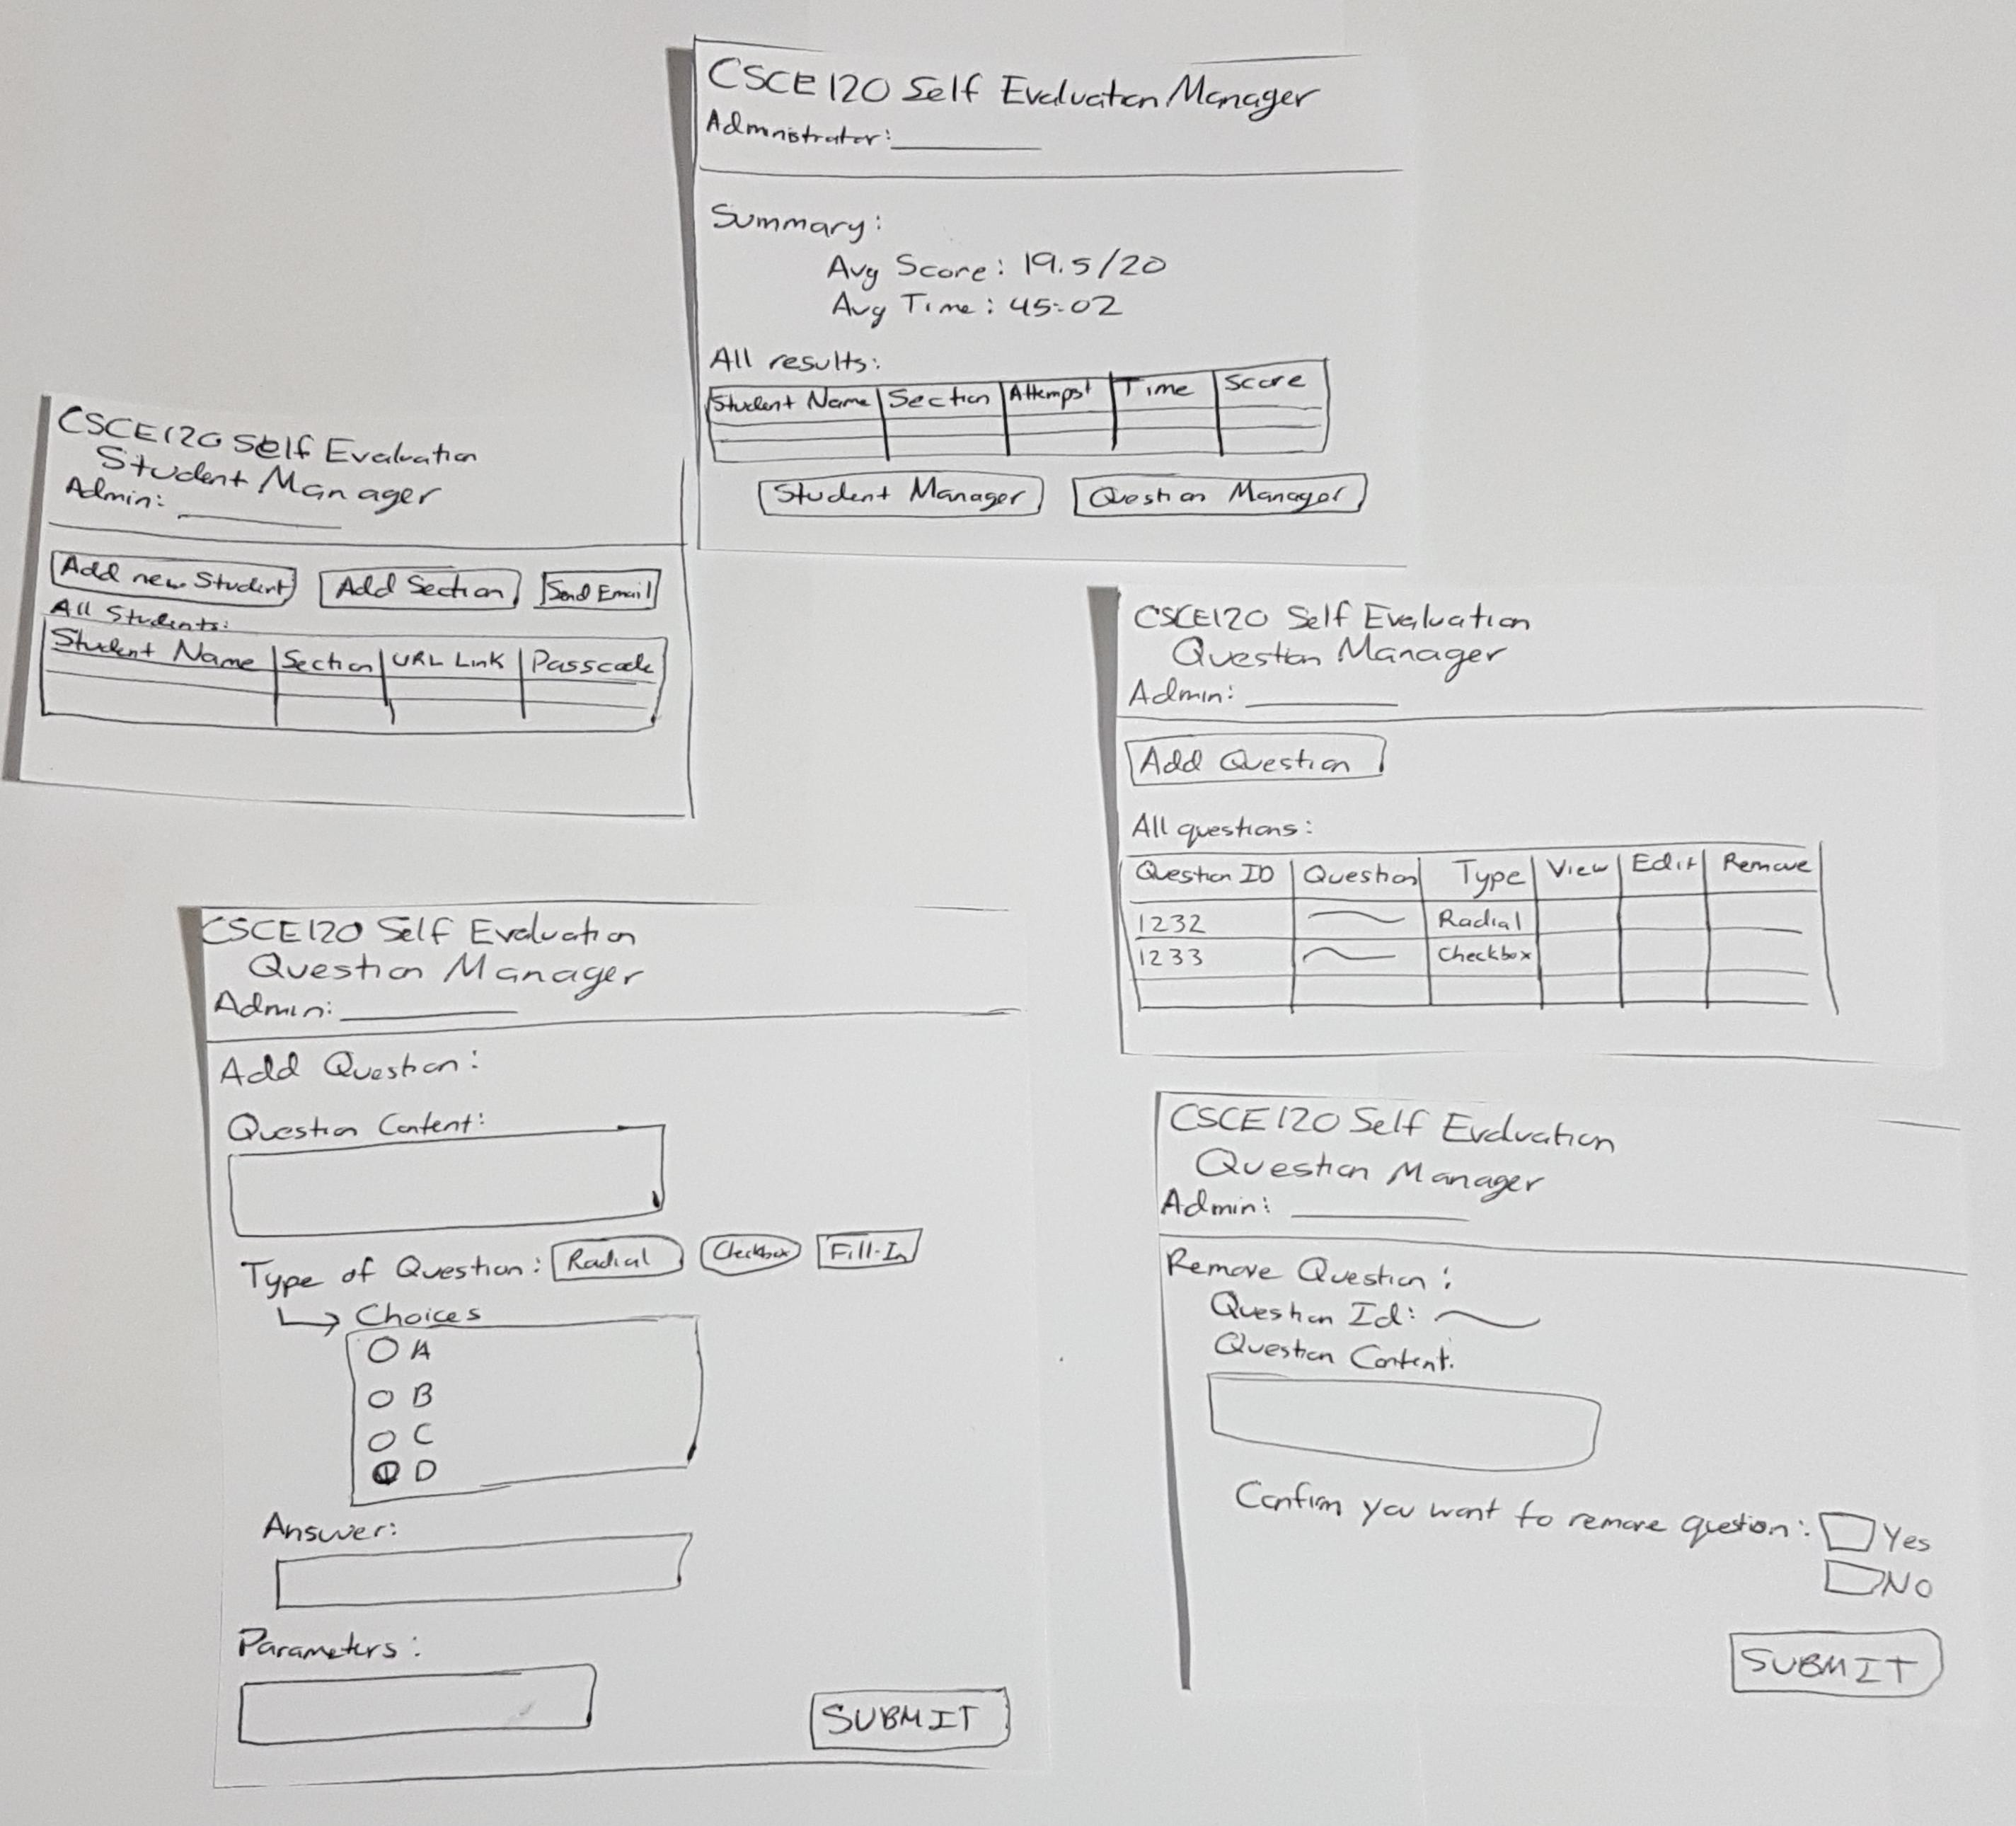 CSCE120 Self Evaluation Manager
Administrator:
Summary:
Avg Score: 19.5/20
Avg Time: 45:02
All results:
Student Name Section Attempst Time Score
Student Manager Question Manager
CSCE120 Self Evaluation
Student Manager
Admin:
Add new Student Add Section Send Email
All Students:
Student Name Section URL Link Passcode
CSCE120 Self Evaluation
Question Manager
Admin:
Add Question
All questions:
Question ID Question Type View Edit Remove
1232 Radial
1233 Checkbox
CSCE120 Self Evaluation
Question Manager
Admin:
Add Question:
Question Content:
Type of Question: Radial Checkbox Fill-In
Choices
A
B
C
D
Answer:
Parameters:
SUBMIT
CSCE120 Self Evaluation
Question Manager
Admin:
Remove Question:
Question Id:
Question Content:
Confirm you want to remove question: Yes
No
SUBMIT